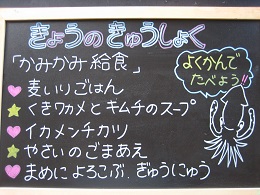 きょうのきゅうしょく
「かみかみ給食」
よくかんで
たべよう!!
麦いりごはん
くきワカメとキムチのスープ
イカメンチカツ
やさいのごまあえ
まめに よろこぶ、ぎゅうにゅう